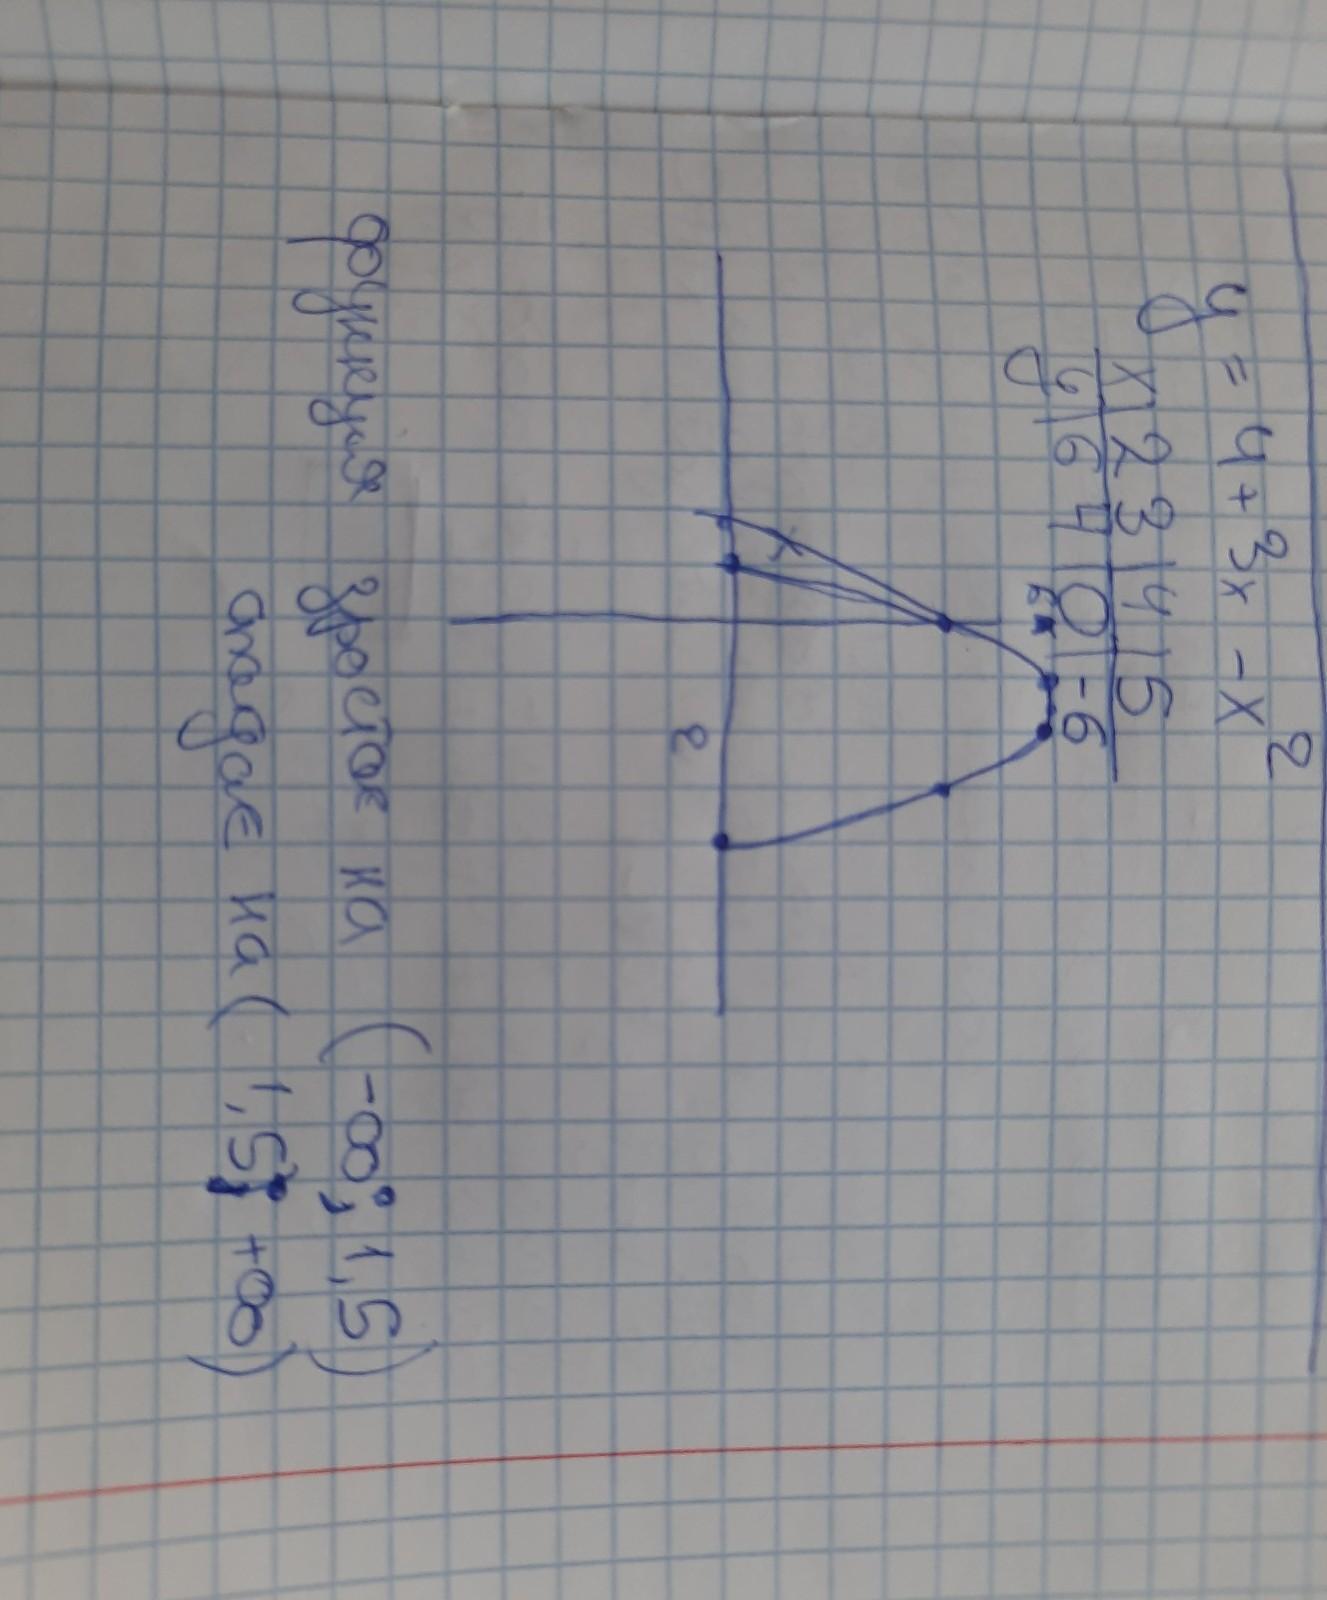 y = 4 + 3x - x²
x | 2 3 | 4 | 5
y | 6 4 | 0 | -6
2
функция зростає на (-∞; 1,5)
спадає на (1,5; +∞)